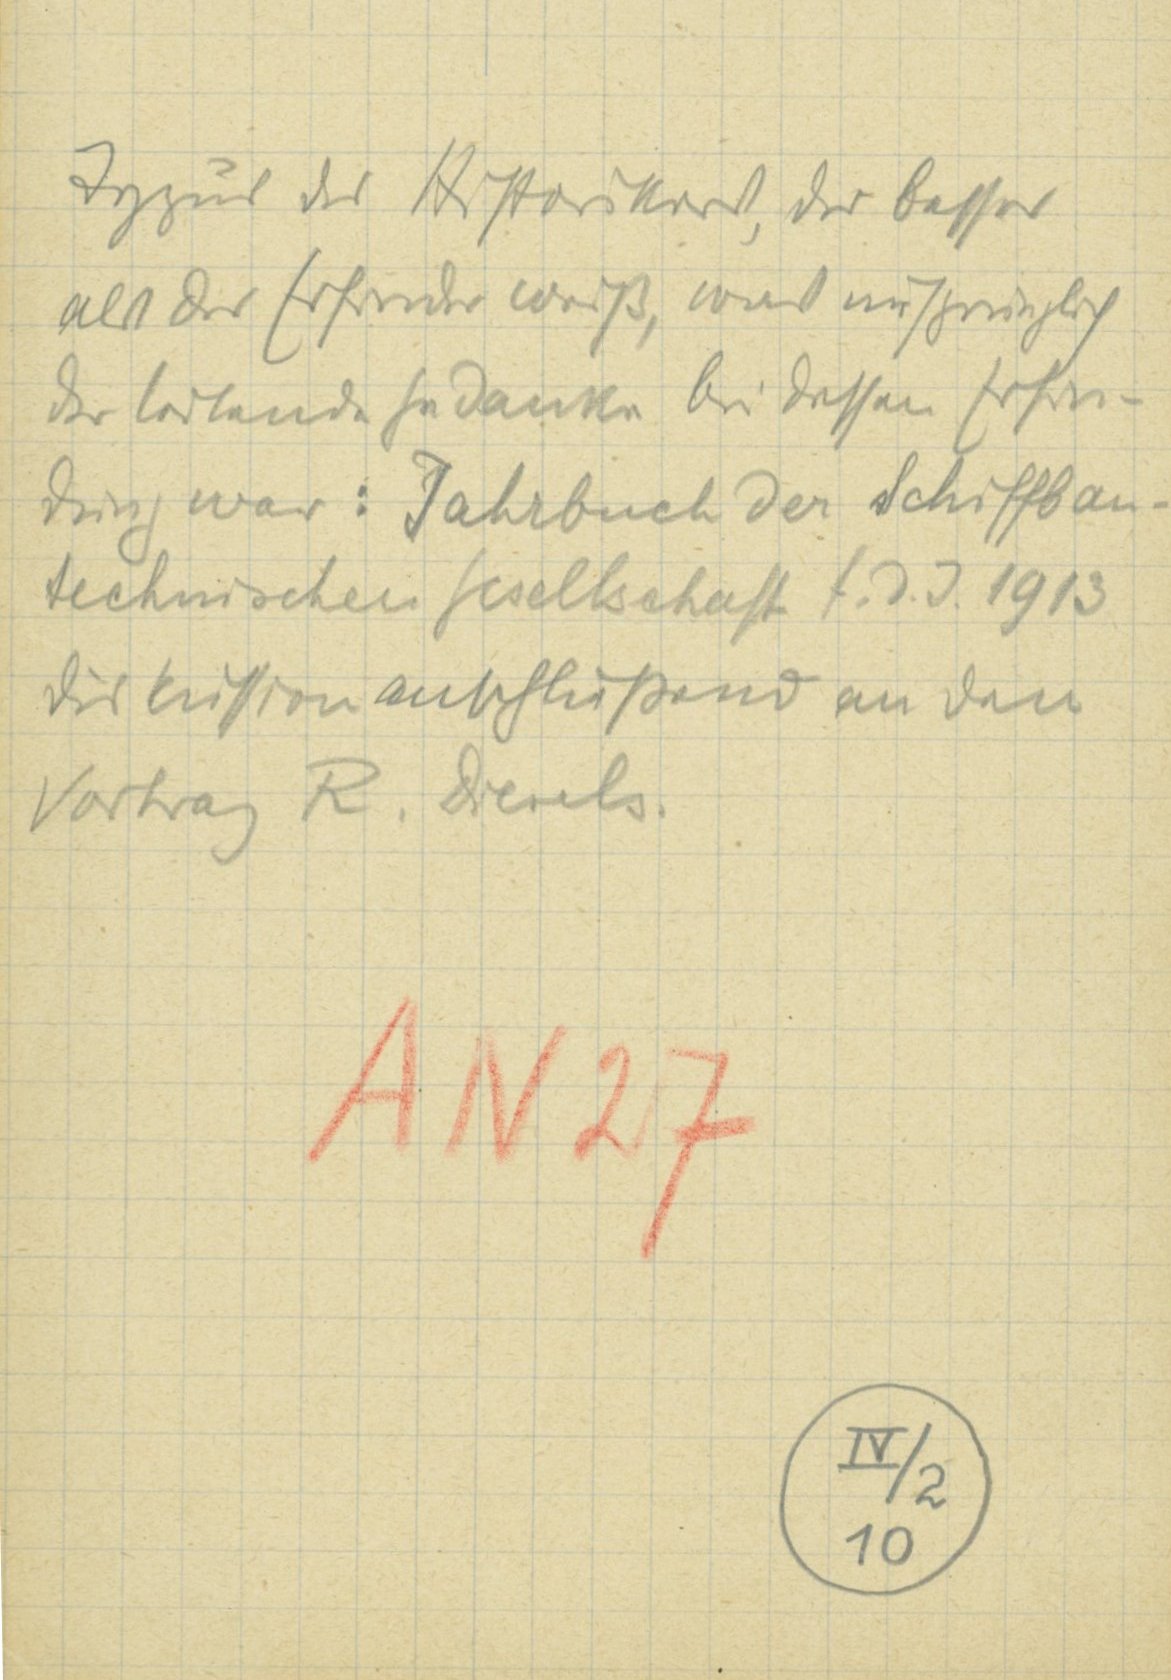 Typus des Historikers, der besser
als der Erfinder weiß, was ursprünglich
der leitende Gedanke bei dessen Erfin-
dung war: Jahrbuch der Schiffbau-
technischen Gesellschaft f. d. J. 1913
Diskussion anschließend an den
Vortrag R. Diesels.
AN27
IV/2
10